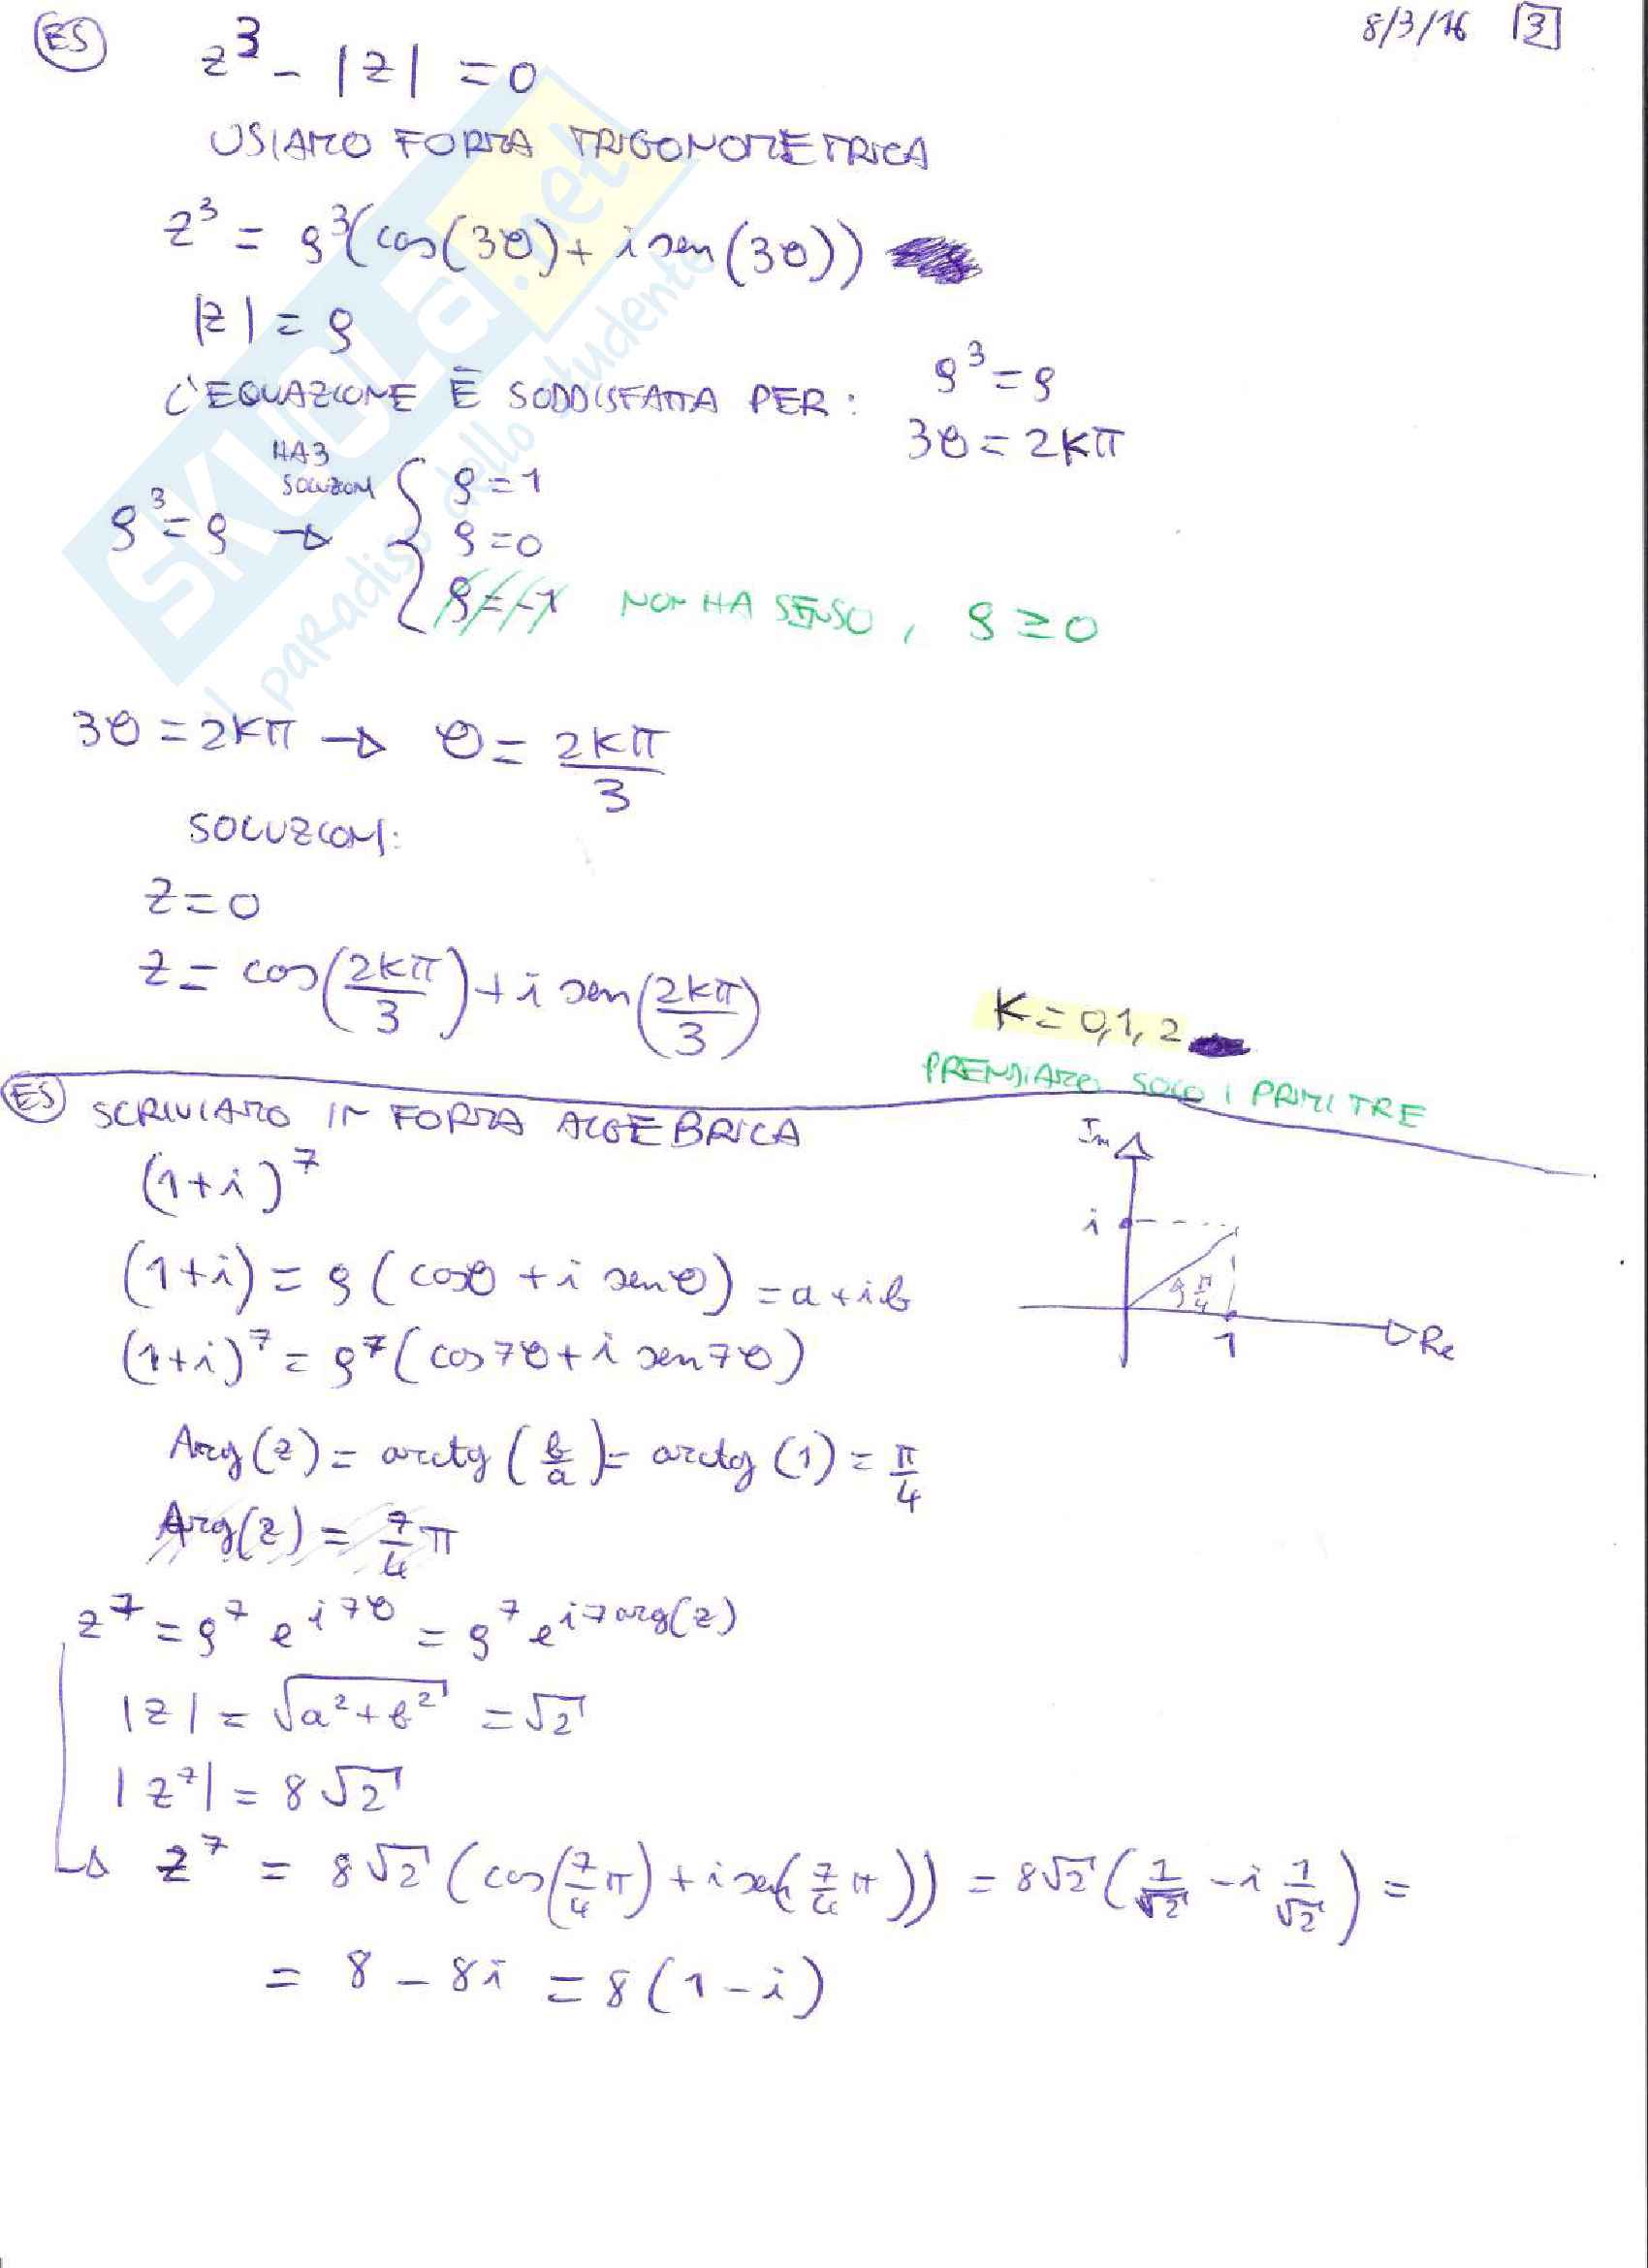 ES
8/3/16 3
z³ - |z| = 0
USIAMO FORMA TRIGONOMETRICA
z³ = ρ³(cos(3θ) + i sen(3θ))
|z| = ρ
L'EQUAZIONE È SODDISFATTA PER: ρ³ = ρ
3θ = 2kπ
ρ³ = ρ → HA 3 SOLUZIONI { ρ = 1
ρ = 0
ρ = -1 NON HA SENSO, ρ ≥ 0
3θ = 2kπ → θ = 2kπ/3
SOLUZIONI:
z = 0
z = cos(2kπ/3) + i sen(2kπ/3) K = 0,1,2
PRENDIAMO SOLO I PRIMI TRE
ES SCRIVIAMO IN FORMA ALGEBRICA
(1+i)⁷
(1+i) = ρ(cosθ + i senθ) = a+ib
(1+i)⁷ = ρ⁷(cos7θ + i sen7θ)
Im
i
ρ π/4
1
Re
Arg(z) = arctg(b/a) = arctg(1) = π/4
Arg(z) = 7/4 π
z⁷ = ρ⁷ e^{i7θ} = ρ⁷ e^{i7arg(z)}
|z| = √(a²+b²) = √2
|z⁷| = 8√2
→ z⁷ = 8√2 (cos(7/4 π) + i sen(7/4 π)) = 8√2 (1/√2 - i 1/√2) =
= 8 - 8i = 8(1-i)
SKUOLa.net
il paRadiso dello studente